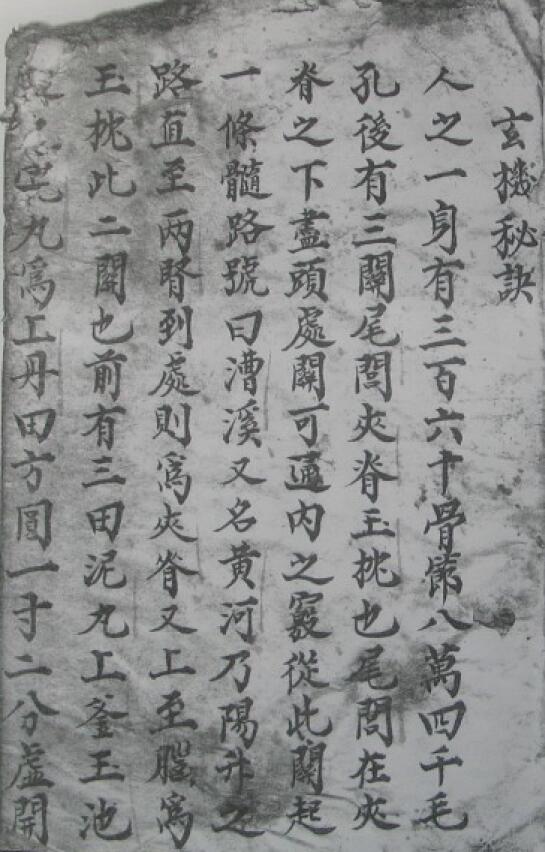 玄機秘訣
人之一身有三百六十骨節八萬四千毛
孔後有三關尾閭夾脊玉枕也尾閭在夾
脊之下盡頭處關可通内之竅從此關起
一條髓路號曰漕溪又名黄河乃陽升之
路直至两腎到處則爲夾脊又上至腦爲
玉枕此二關也前有三田泥丸上釜玉池
宅丸爲上丹田方圓一寸二分虚開